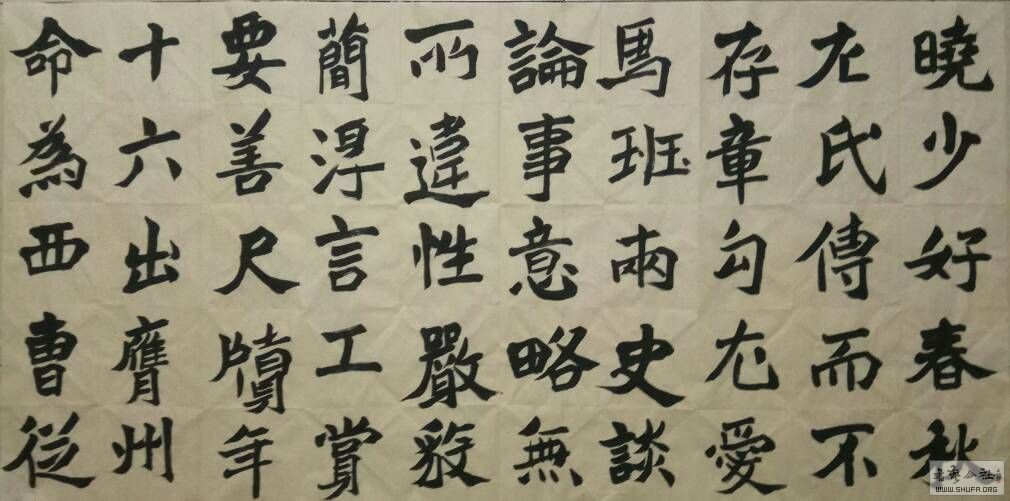 曉少好春秋
左氏傳而不
存章勾尤愛
馬班兩史談
論事意略無
所違性嚴毅
簡淂言工賞
要善尺牘年
十六出膺州
命為西曹從
書藝公社
WWW.SHUFA.ORG